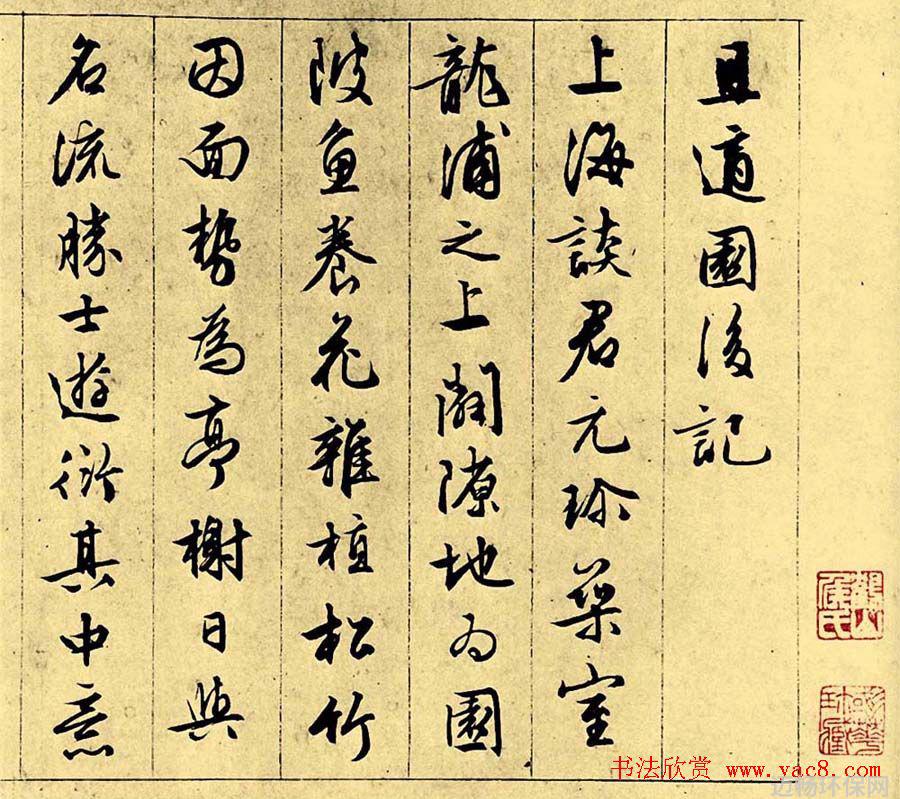 且適園後記
上海談君元珍築室
龍浦之上闢隙地為園
陂魚養花雜植松竹
因面勢為亭榭日與
名流勝士遊衍其中意
书法欣赏 www.yac8.com
迈畅环保网